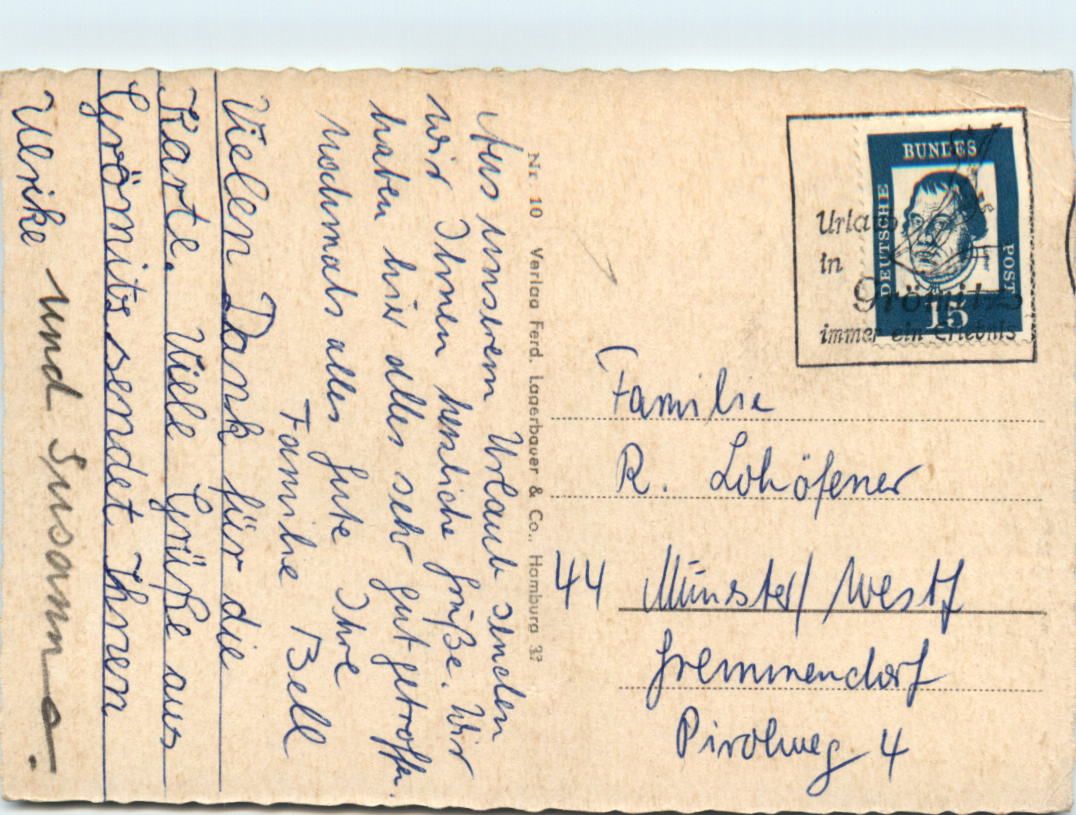 Aus unserem Urlaub senden
wir Ihnen herzliche Grüße. Wir
haben hier alles sehr gut getroffen.
Nochmals alles Gute Ihre
Familie Bell
Vielen Dank für die
Karte. Viele Grüße aus
Grömitz sendet Ihnen
Ulrike und Susanna.
Nr. 10 Verlag Ferd. Lagerbauer & Co., Hamburg 33
DEUTSCHE
BUNDES
POST
15
Urlaub
in
Grömitz
immer ein Erlebnis
Familie
R. Lohöfener
44 Münster/Westf
Gremmendorf
Pirolweg 4